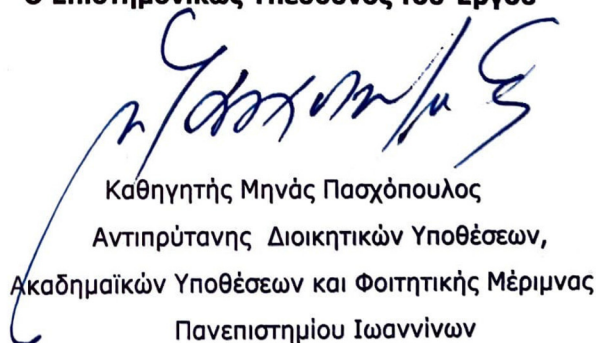 Ο Επιστημονικώς Υπεύθυνος του Έργου
Καθηγητής Μηνάς Πασχόπουλος
Αντιπρύτανης Διοικητικών Υποθέσεων,
Ακαδημαϊκών Υποθέσεων και Φοιτητικής Μέριμνας
Πανεπιστημίου Ιωαννίνων